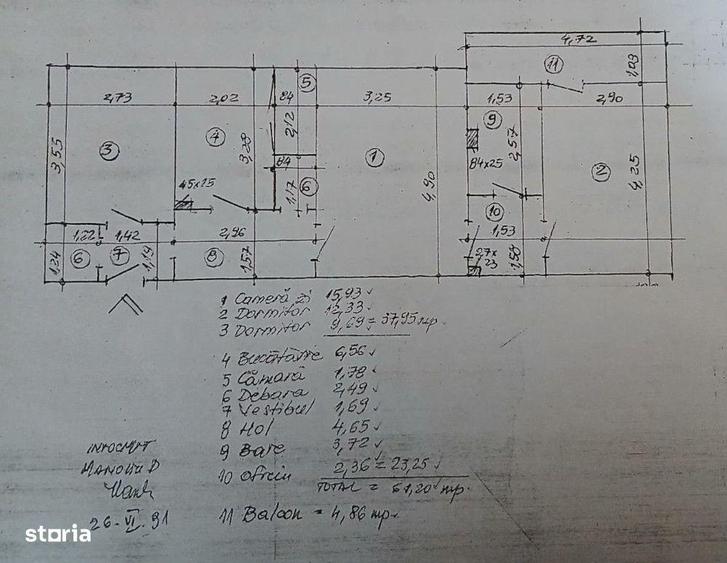 4,72
11
1,03
5
2,73
2,02
84
3,25
1,53
2,90
2,12
9
3,55
3
4
3,28
1
2,57
2
84
84x25
4,90
4,25
45x25
1,17
6
10
1,22
1,42
2,96
1,53
1,24
6
7
1,19
8
1,57
27x
23
1,58
1 Cameră zi 15,93
2 Dormitor 12,33
3 Dormitor 9,69 = 37,95 mp.
4 Bucătărie 6,56
5 Cămară 1,78
6 Debara 2,49
7 Vestibul 1,69
8 Hol 4,65
9 Baie 3,72
10 Oficiu 2,36 = 23,25
TOTAL = 61,20 mp.
11 Balcon = 4,86 mp.
INTOCMIT
26-VI-91
storia